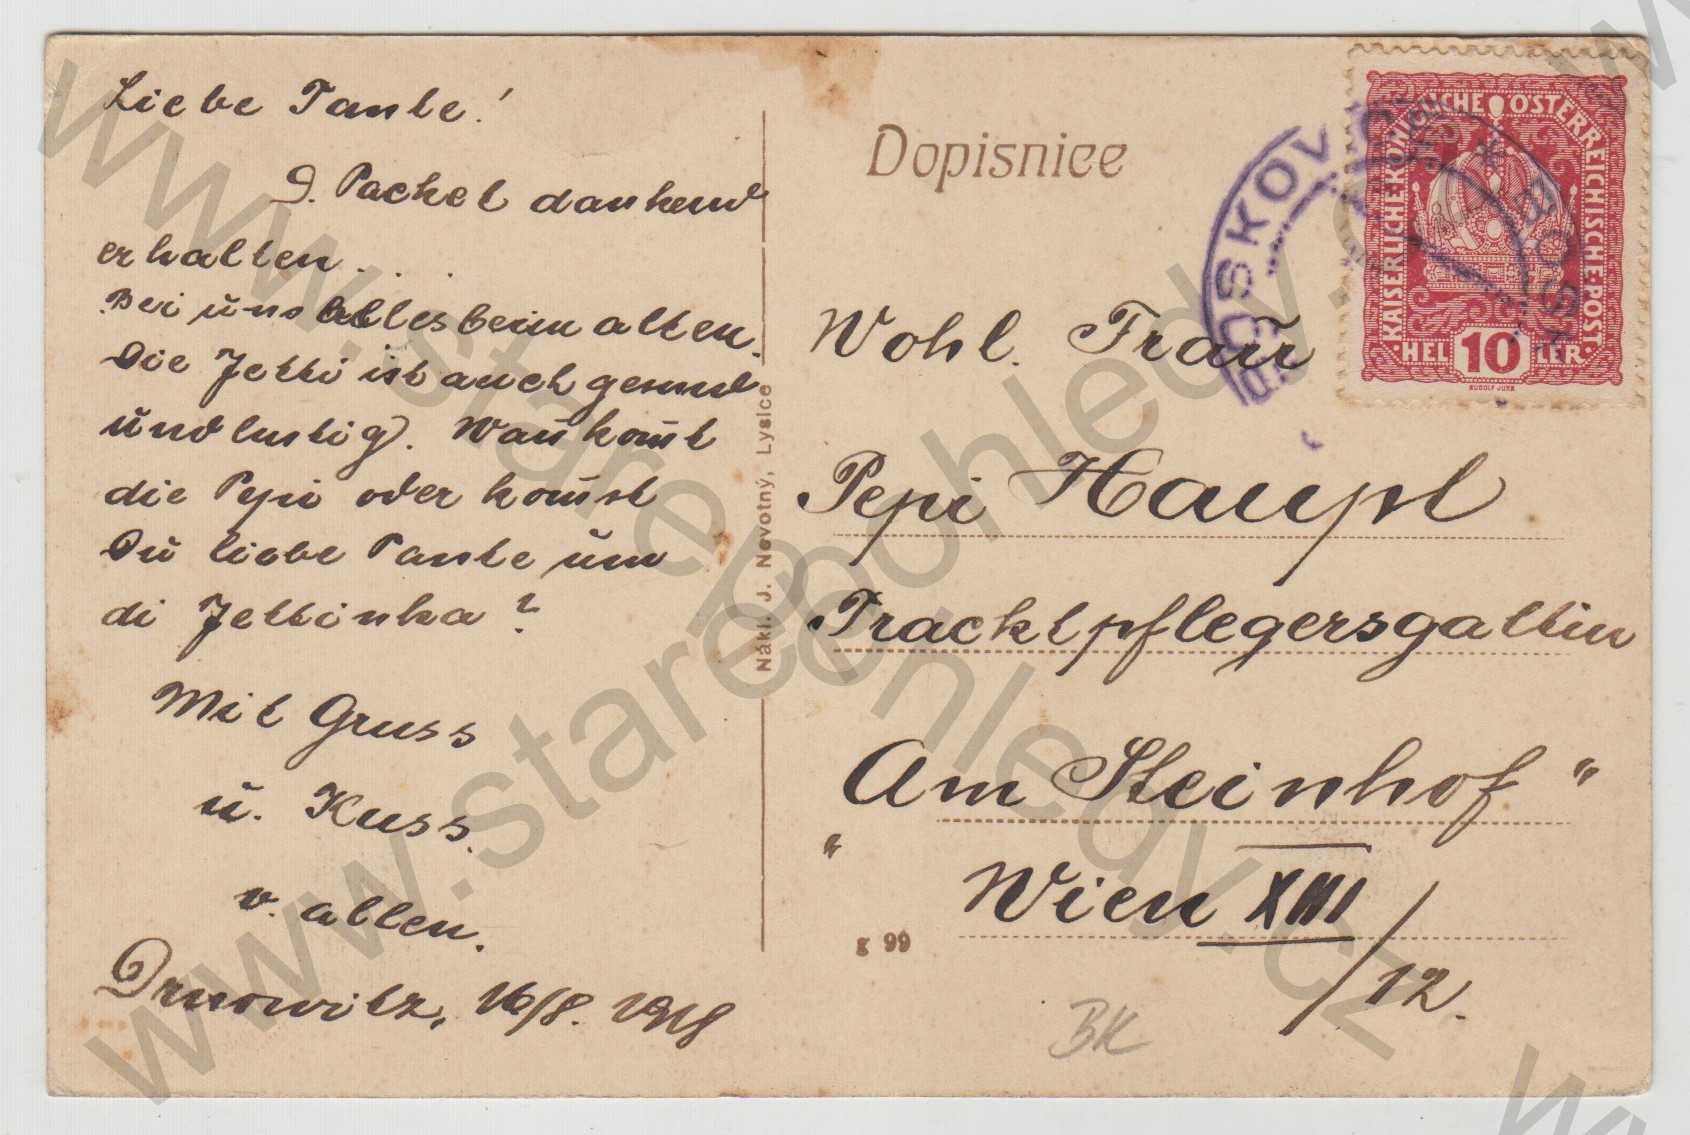 Liebe Tante!
D. Packet dankend
erhalten...
Bei uns alles beim alten.
Die Jetti ist auch gesund
und lustig. Wan̄ kom̄t
die Pepi oder kom̄st
Du liebe Tante um
di Jettinka?
Mit Gruss
u. Kuss.
v. allen.
Drnowitz, 16/8. 1918
Nákl. J. Novotný, Lysice
Dopisnice
KAISERLICHE KÖNIGLICHE ÖSTERREICHISCHE POST
HELLER
10
RUDOLF JUNK
Wohl. Frau
Pepi Haupl
Tracktpflegersgattin
"Am Steinhof"
Wien XIII
/12.
g 99
BK
www.starepohledy.cz
www.starepohledy.cz